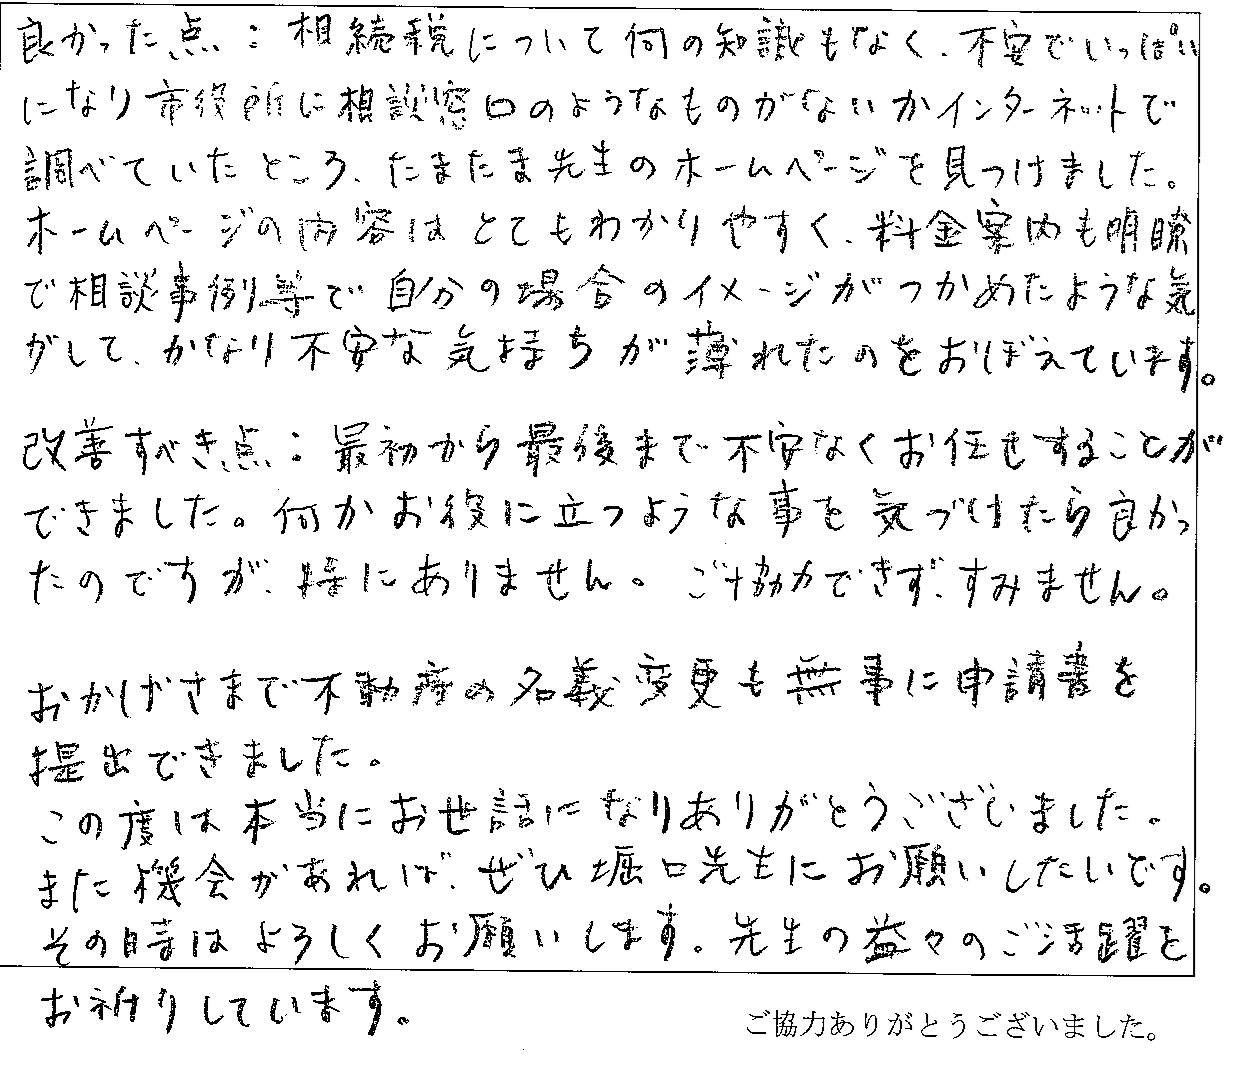 良かった点：相続税について何の知識もなく、不安でいっぱい
になり市役所に相談窓口のようなものがないかインターネットで
調べていたところ、たまたま先生のホームページを見つけました。
ホームページの内容はとてもわかりやすく、料金案内も明瞭
で相談事例等で自分の場合のイメージがつかめたような気
がして、かなり不安な気持ちが薄れたのをおぼえています。
改善すべき点：最初から最後まで不安なくお任せすることが
できました。何かお役に立つような事を気づけたら良かっ
たのですが、特にありません。ご協力できず、すみません。
おかげさまで不動産の名義変更も無事に申請書を
提出できました。
この度は本当にお世話になりありがとうございました。
また機会があれば、ぜひ堀口先生にお願いしたいです。
その時はよろしくお願いします。先生の益々のご活躍を
お祈りしています。
ご協力ありがとうございました。